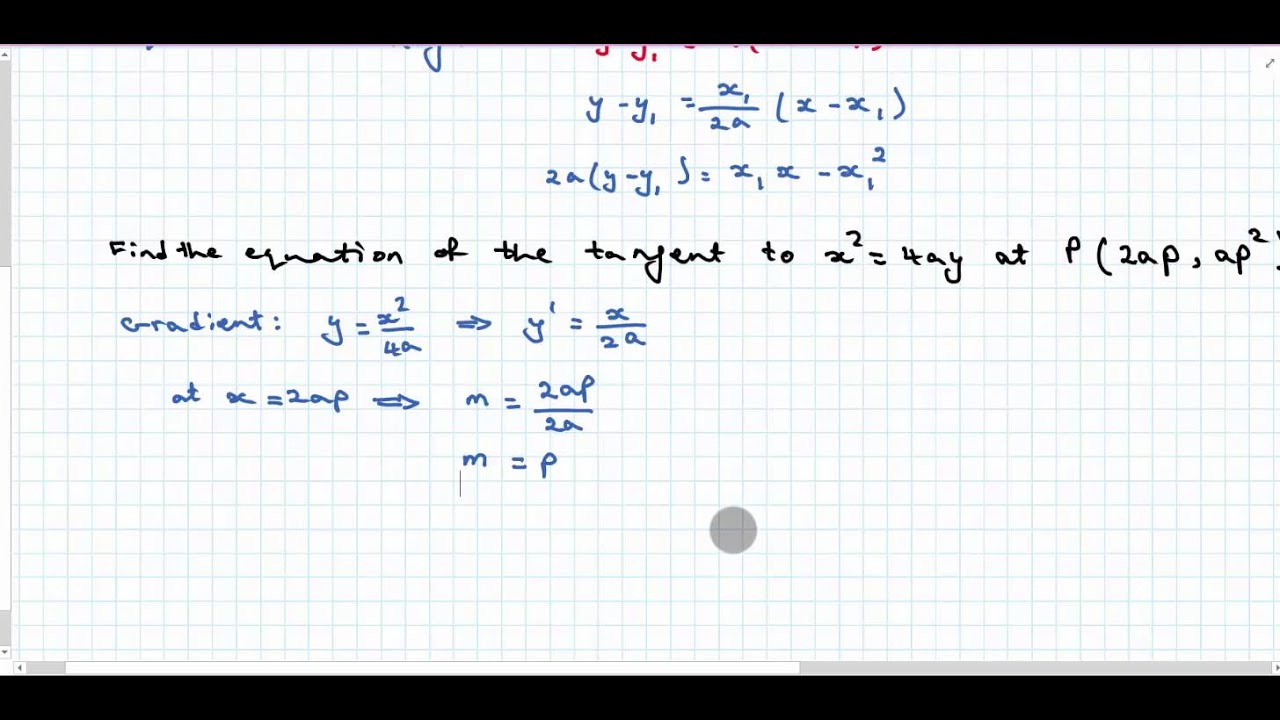 y - y₁ = x₁/2a (x - x₁)
2a(y - y₁) = x₁x - x₁²
Find the equation of the tangent to x² = 4ay at P(2ap, ap²)
Gradient: y = x²/4a ⇒ y' = x/2a
at x = 2ap ⇒ m = 2ap/2a
m = p